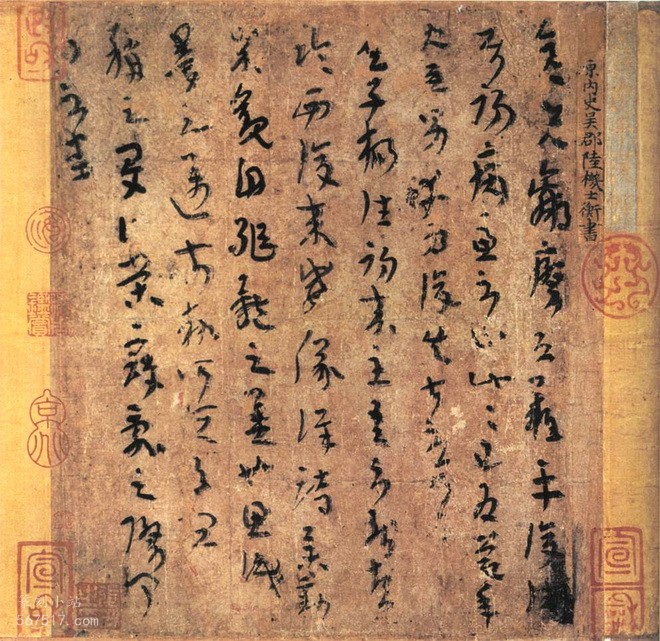 晉內史吳郡陸機士衡書
彥先羸瘵恐難平復往屬
初病慮不止此此已為慶承
使唯男幸為復失前憂耳
吳子楊往初來主吾不能盡
臨西復來威儀詳跱舉動
成觀自軀體之美也思識
量之邁前執所恒有宜
稱之夏伯榮寇亂之際聞
問不悉
567517.com